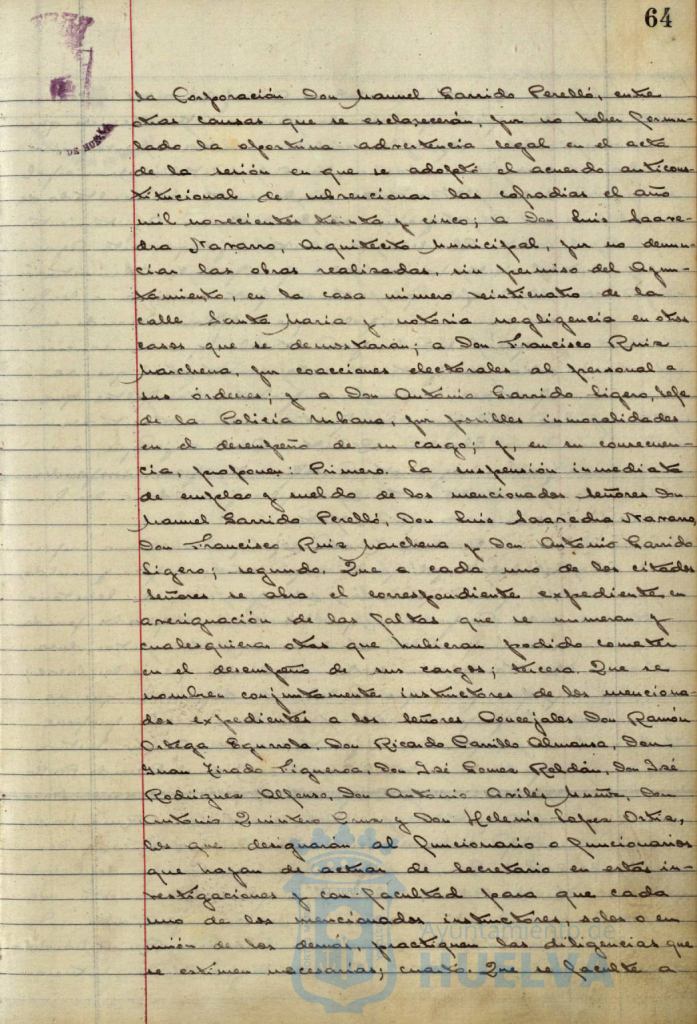 64
la Corporación Don Manuel Garrido Perelló, entre
otras causas que se esclarecerán, por no haber formu-
lado la oportuna advertencia legal en el acta
de la sesión en que se adoptó el acuerdo anticons-
titucional de subvencionar las cofradias el año
mil novecientos treinta y cinco; a Don Luis Saave-
dra Navarro, Arquitecto Municipal, por no denun-
ciar las obras realizadas, sin permiso del Ayun-
tamiento, en la casa número veinticuatro de la
calle Santa Maria y notoria negligencia en otros
casos que se demostrarán; a Don Francisco Ruiz
Marchena, por coacciones electorales al personal a
sus órdenes; y a Don Antonio Garrido Ligero, Jefe
de la Policía Urbana, por posibles inmoralidades
en el desempeño de su cargo; y, en su consecuen-
cia, proponen: Primero. La suspensión inmediata
de empleo y sueldo de los mencionados señores Don
Manuel Garrido Perelló, Don Luis Saavedra Navarro,
Don Francisco Ruiz Marchena y Don Antonio Garrido
Ligero; segundo. Que a cada uno de los citados
señores se abra el correspondiente expediente en
averiguación de las faltas que se numeran y
cualesquieras otras que hubieran podido cometer
en el desempeño de sus cargos; tercera. Que se
nombren conjuntamente instructores de los menciona-
dos expedientes a los señores Concejales Don Ramón
Ortega Egurrola, Don Ricardo Carrillo Almansa, Don
Juan Tirado Figueroa, Don José Gomez Roldán, Don José
Rodriguez Alfonso, Don Antonio Avilés Muñoz, Don
Antonio Quintero Cruz y Don Helenio Lopez Ortiz,
los que designarán al funcionario o funcionarios
que hayan de actuar de Secretario en estas in-
vestigaciones y con facultad para que cada
uno de los mencionados instructores, solos o en
unión de los demás, practiquen las diligencias que
se estimen necesarias; cuarto. Que se faculte a
DE HUELVA
Ayuntamiento de
HUELVA